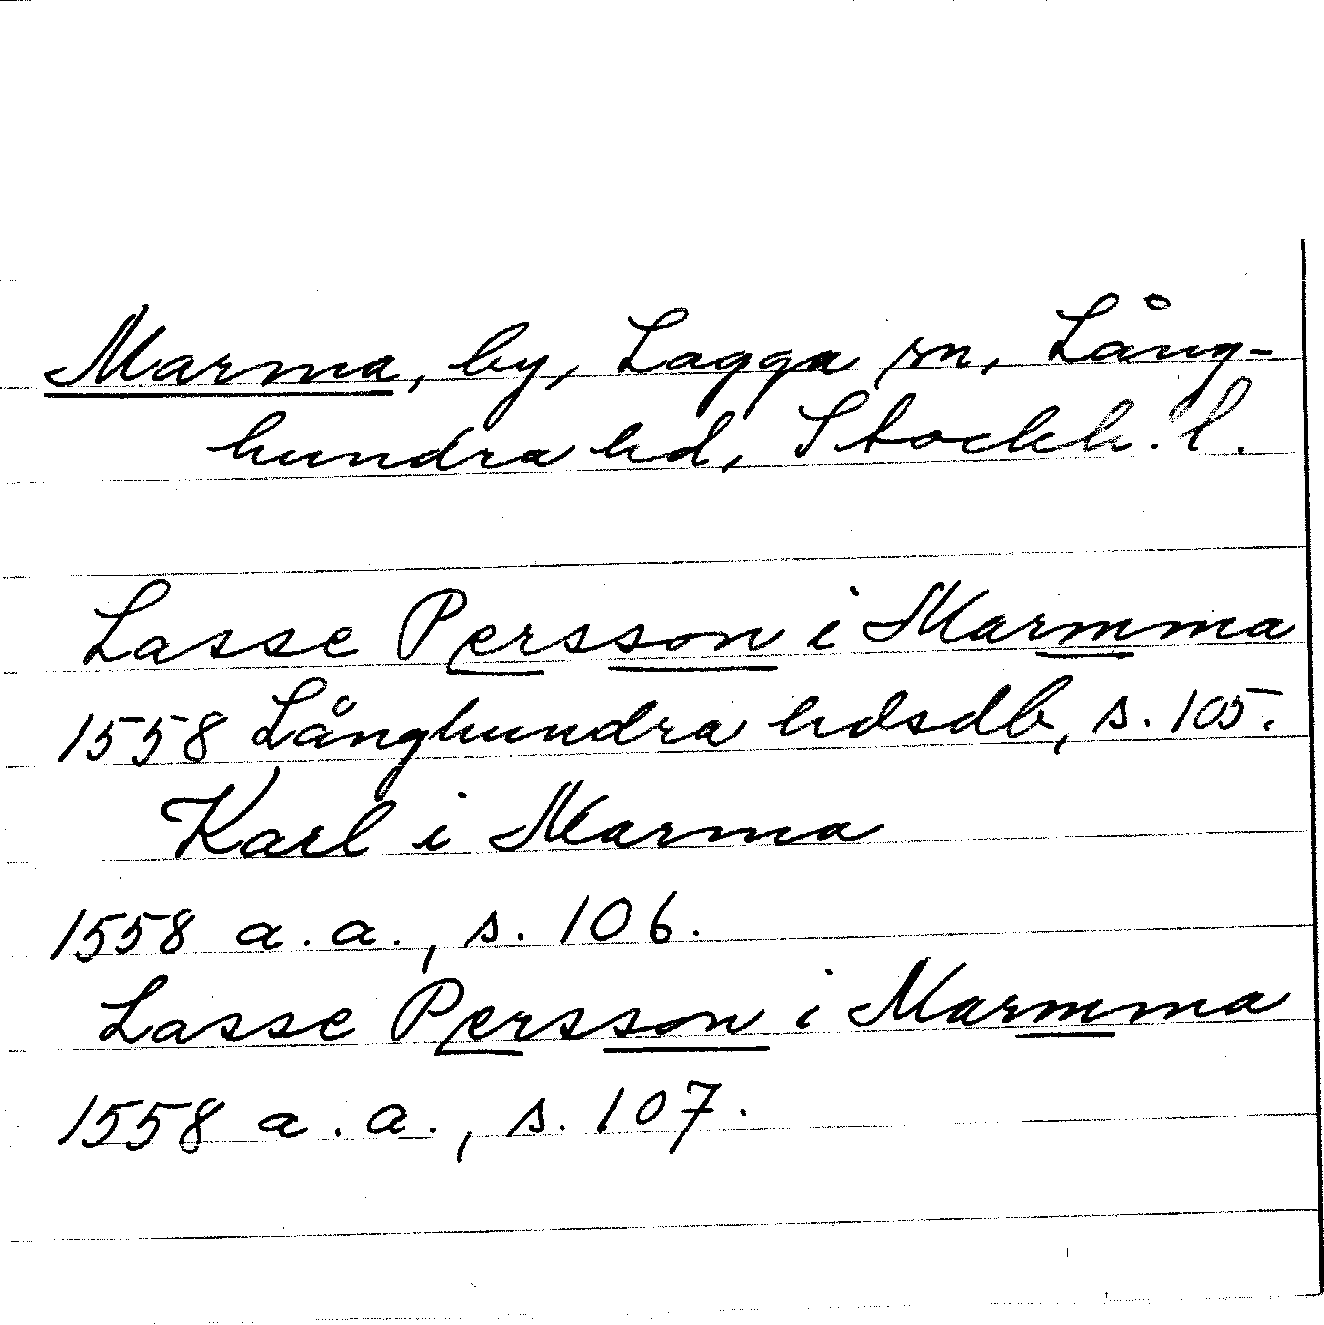 Marma, by, Lagga sn, Lång-
hundra hd, Stockh. l.
Lasse Persson i Marmma
1558 Långhundra hdsdb, s. 105.
Karl i Marma
1558 a.a., s. 106.
Lasse Persson i Marmma
1558 a.a., s. 107.